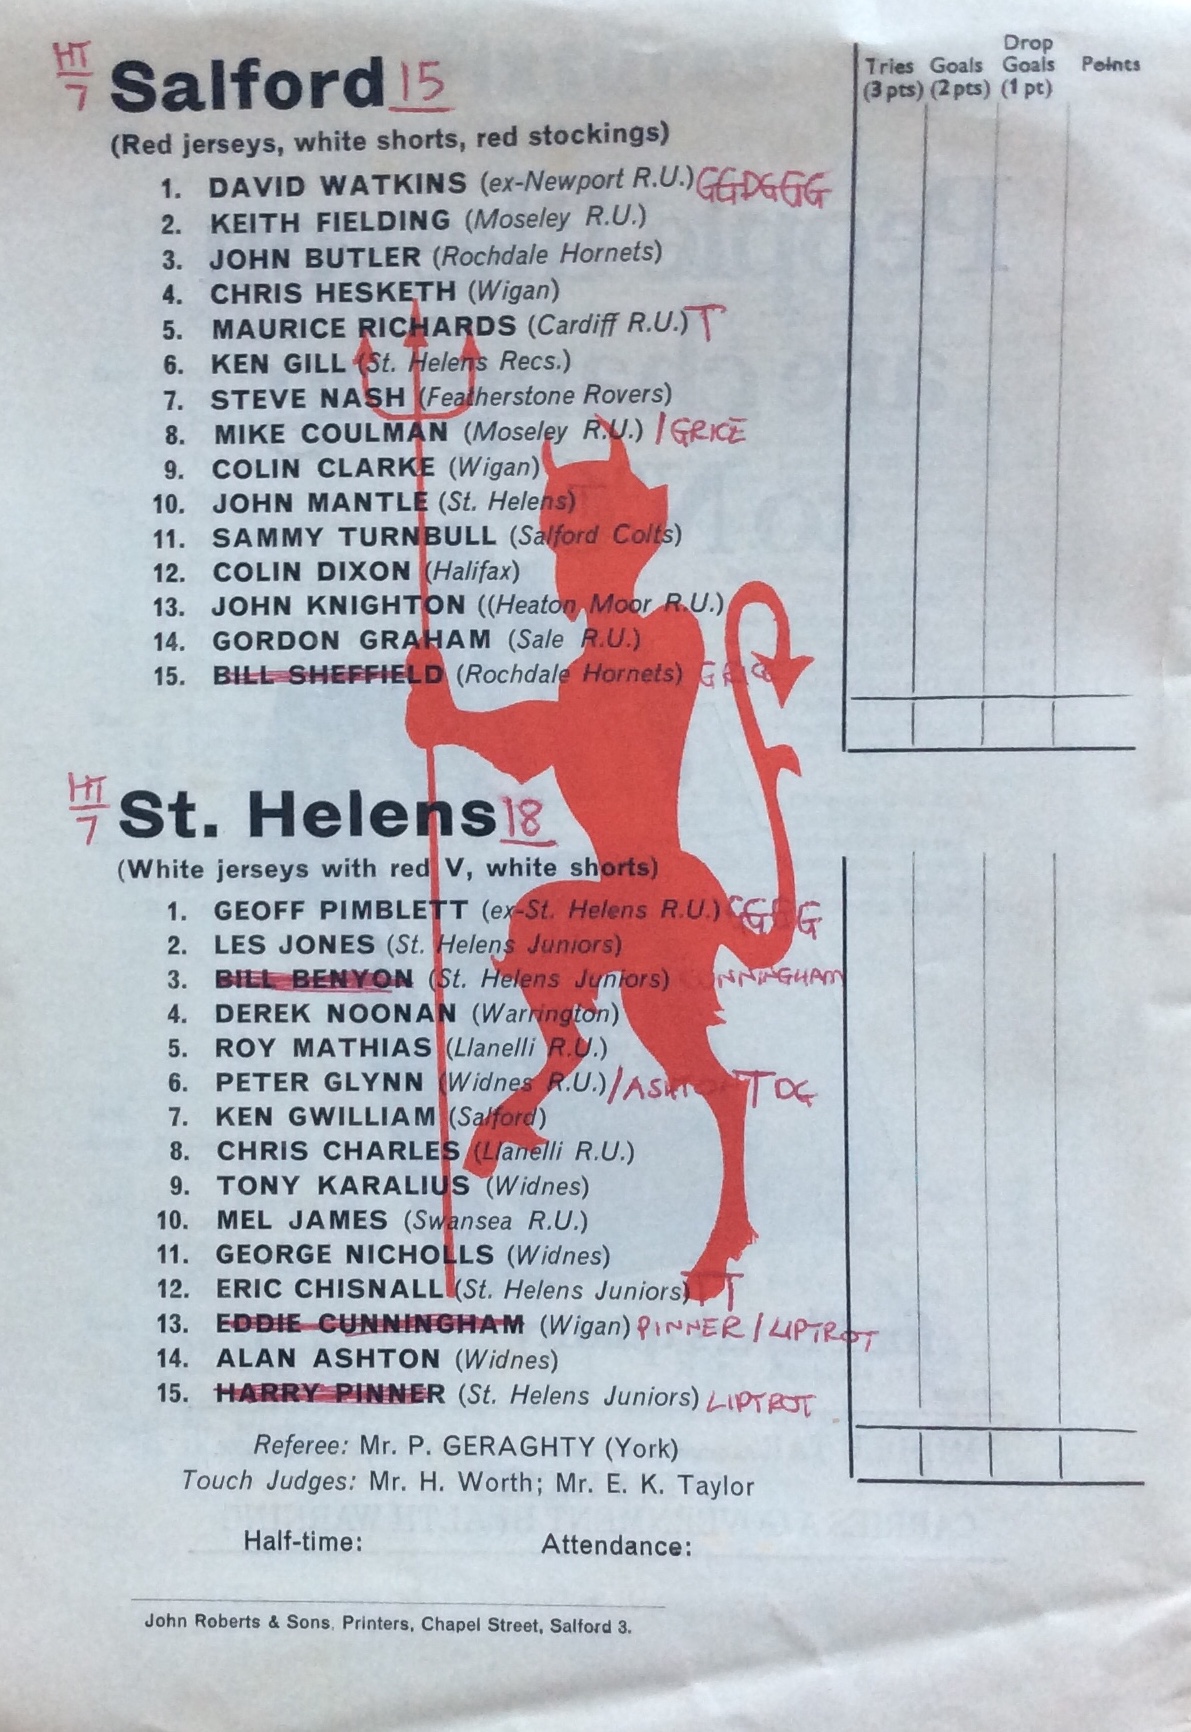 HT
7
Salford 15
(Red jerseys, white shorts, red stockings)
Tries Goals Drop Goals Points
(3 pts) (2 pts) (1 pt)
1. DAVID WATKINS (ex-Newport R.U.) GGDGGG
2. KEITH FIELDING (Moseley R.U.)
3. JOHN BUTLER (Rochdale Hornets)
4. CHRIS HESKETH (Wigan)
5. MAURICE RICHARDS (Cardiff R.U.) T
6. KEN GILL (St. Helens Recs.)
7. STEVE NASH (Featherstone Rovers)
8. MIKE COULMAN (Moseley R.U.) / GRICE
9. COLIN CLARKE (Wigan)
10. JOHN MANTLE (St. Helens)
11. SAMMY TURNBULL (Salford Colts)
12. COLIN DIXON (Halifax)
13. JOHN KNIGHTON ((Heaton Moor R.U.)
14. GORDON GRAHAM (Sale R.U.)
15. BILL SHEFFIELD (Rochdale Hornets)
HT
7
St. Helens 18
(White jerseys with red V, white shorts)
1. GEOFF PIMBLETT (ex-St. Helens R.U.)
2. LES JONES (St. Helens Juniors)
3. BILL BENYON (St. Helens Juniors) CUNNINGHAM
4. DEREK NOONAN (Warrington)
5. ROY MATHIAS (Llanelli R.U.)
6. PETER GLYNN (Widnes R.U.) / ASHTON T DG
7. KEN GWILLIAM (Salford)
8. CHRIS CHARLES (Llanelli R.U.)
9. TONY KARALIUS (Widnes)
10. MEL JAMES (Swansea R.U.)
11. GEORGE NICHOLLS (Widnes)
12. ERIC CHISNALL (St. Helens Juniors) TT
13. EDDIE CUNNINGHAM (Wigan) PINNER / LIPTROT
14. ALAN ASHTON (Widnes)
15. HARRY PINNER (St. Helens Juniors) LIPTROT
Referee: Mr. P. GERAGHTY (York)
Touch Judges: Mr. H. Worth; Mr. E. K. Taylor
Half-time: Attendance:
John Roberts & Sons, Printers, Chapel Street, Salford 3.